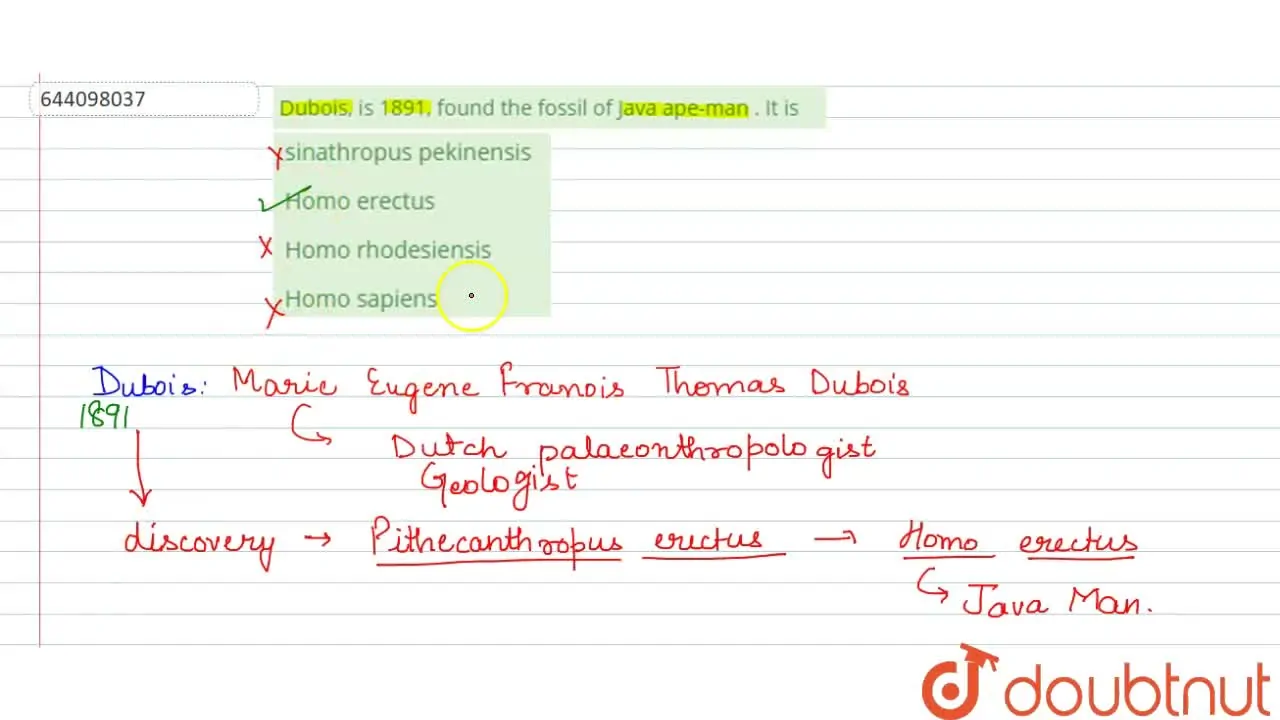 644098037
Dubois, is 1891, found the fossil of Java ape-man . It is
x sinathropus pekinensis
✓ Homo erectus
x Homo rhodesiensis
x Homo sapiens
Dubois: Marie Eugene Franois Thomas Dubois
1891
Dutch palaeonthropologist
Geologist
discovery → Pithecanthropus erectus → Homo erectus
Java Man.
doubtnut